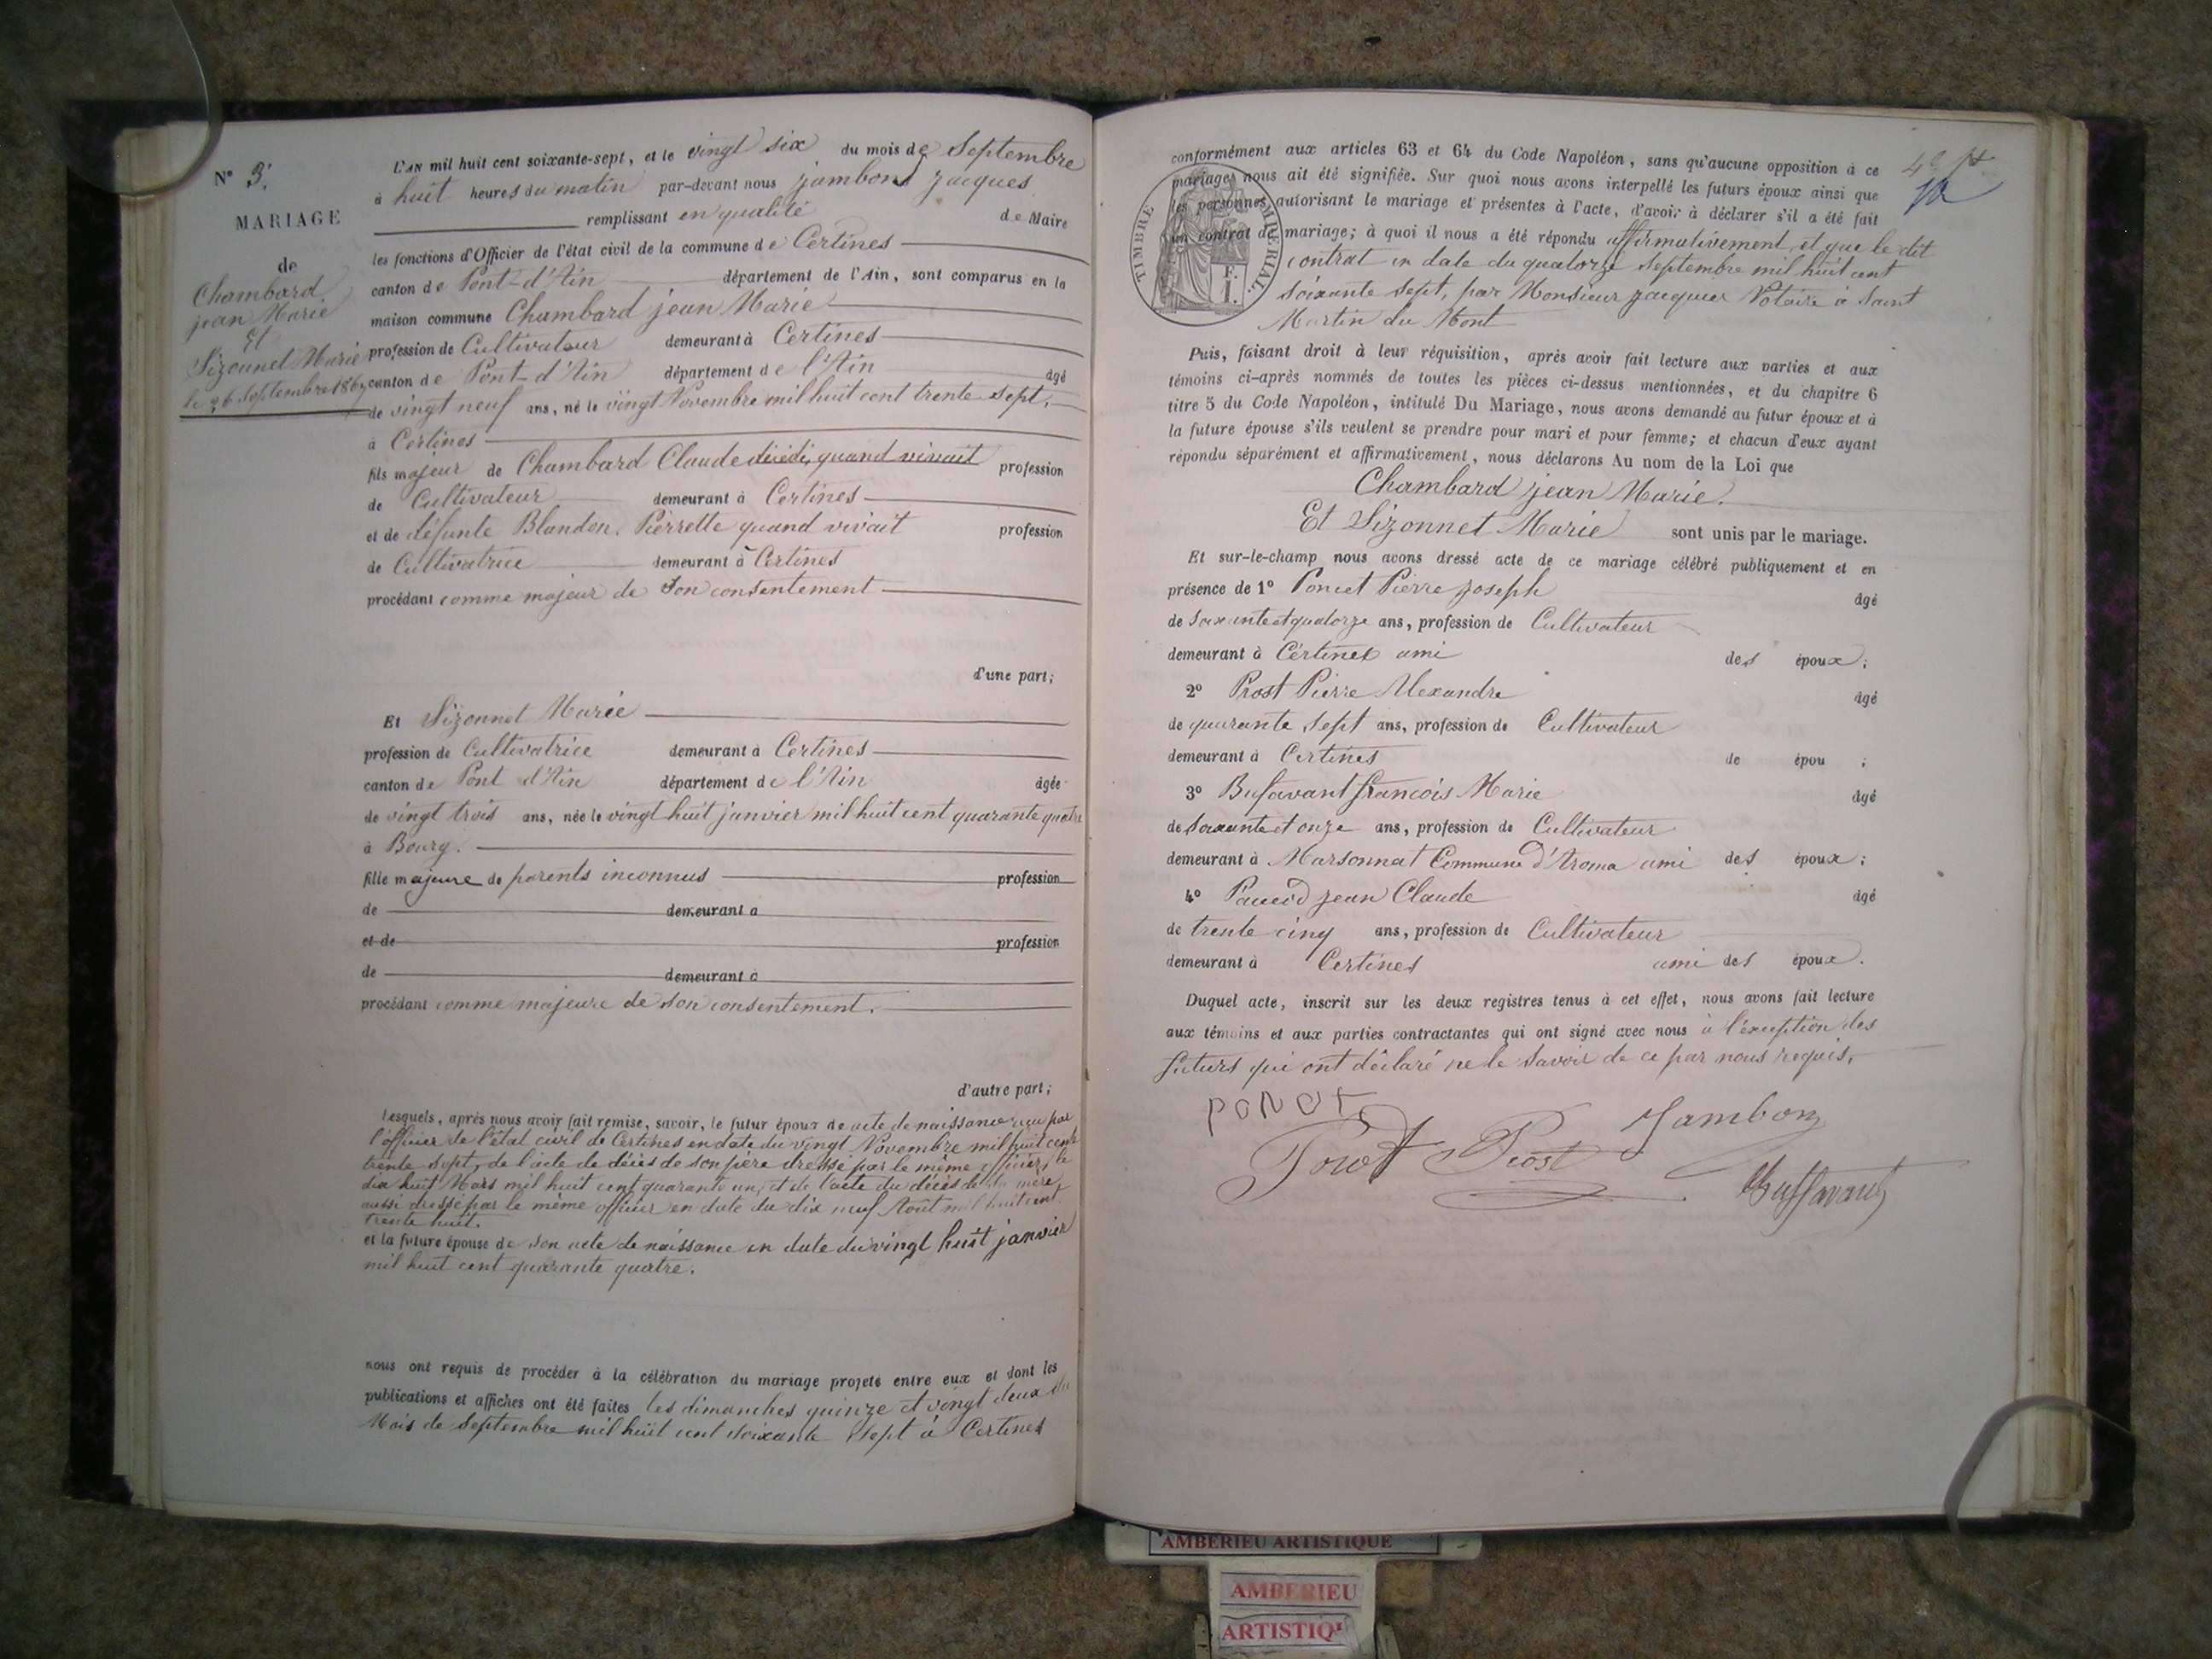 N° 3.
MARIAGE
de
Chambard
jean Marie
Et
Sizonnet Marie
le 26 Septembre 1867
L'AN mil huit cent soixante-sept, et le vingt six du mois de Septembre
à huit heures du matin par-devant nous jambon jacques
remplissant en qualité de Maire
les fonctions d'Officier de l'état civil de la commune de Certines
canton de Pont-d'Ain département de l'Ain, sont comparus en la
maison commune Chambard jean Marie
profession de Cultivateur demeurant à Certines
canton de Pont-d'Ain département de l'Ain âgé
de vingt neuf ans, né le vingt Novembre mil huit cent trente sept,
à Certines
fils majeur de Chambard Claude décédé, quand vivait profession
de Cultivateur demeurant à Certines
et de défunte Blanden. Pierrette quand vivait profession
de Cultivatrice demeurant à Certines
procédant comme majeur de son consentement
d'une part;
Et Sizonnet Marie
profession de Cultivatrice demeurant à Certines
canton de Pont d'Ain département de l'Ain âgée
de vingt trois ans, née le vingt huit janvier mil huit cent quarante quatre
à Bourg.
fille majeure de parents inconnus profession
de demeurant à
et de profession
de demeurant à
procédant comme majeure de son consentement.
d'autre part;
Lesquels, après nous avoir fait remise, savoir, le futur époux de acte de naissance reçu par
l'officier de l'état civil de Certines en date du vingt Novembre mil huit cent
trente sept, de l'acte de décès de son père dressé par le même officier, le
dix huit Mars mil huit cent quarante un, et de l'acte du décès de sa mère,
aussi dressé par le même officier en date du dix neuf Août mil huit cent
trente huit.
et la future épouse de son acte de naissance en date du vingt huit janvier
mil huit cent quarante quatre.
nous ont requis de procéder à la célébration du mariage projeté entre eux et dont les
publications et affiches ont été faites les dimanches quinze et vingt deux du
Mois de Septembre mil huit cent soixante sept à Certines
conformément aux articles 63 et 64 du Code Napoléon, sans qu'aucune opposition à ce
mariage nous ait été signifiée. Sur quoi nous avons interpellé les futurs époux ainsi que
les personnes autorisant le mariage et présentes à l'acte, d'avoir à déclarer s'il a été fait
un contrat de mariage; à quoi il nous a été répondu affirmativement, et que le dit
contrat en date du quatorze Septembre mil huit cent
soixante sept, par Monsieur jacquier Notaire à Saint
Martin du Mont
TIMBRE IMPERIAL.
F.
I.
Puis, faisant droit à leur réquisition, après avoir fait lecture aux parties et aux
témoins ci-après nommés de toutes les pièces ci-dessus mentionnées, et du chapitre 6
titre 5 du Code Napoléon, intitulé Du Mariage, nous avons demandé au futur époux et à
la future épouse s'ils veulent se prendre pour mari et pour femme; et chacun d'eux ayant
répondu séparément et affirmativement, nous déclarons Au nom de la Loi que
Chambard jean Marie.
Et Sizonnet Marie sont unis par le mariage.
Et sur-le-champ nous avons dressé acte de ce mariage célébré publiquement et en
présence de 1° Poncet Pierre joseph âgé
de soixante et quatorze ans, profession de Cultivateur
demeurant à Certines ami des époux;
2° Prost Pierre Alexandre âgé
de quarante sept ans, profession de Cultivateur
demeurant à Certines de épou ;
3° Bufavant francois Marie âgé
de soixante et onze ans, profession de Cultivateur
demeurant à Marsonnat Commune d'Aroma ami des époux;
4° jean Claude âgé
de trente cinq ans, profession de Cultivateur
demeurant à Certines ami des époux.
Duquel acte, inscrit sur les deux registres tenus à cet effet, nous avons fait lecture
aux témoins et aux parties contractantes qui ont signé avec nous à l'exception des
futurs qui ont déclaré ne le savoir de ce par nous requis.
Jambon
Prost
Buffavant
AMBERIEU ARTISTIQUE
AMBERIEU
ARTISTIQ